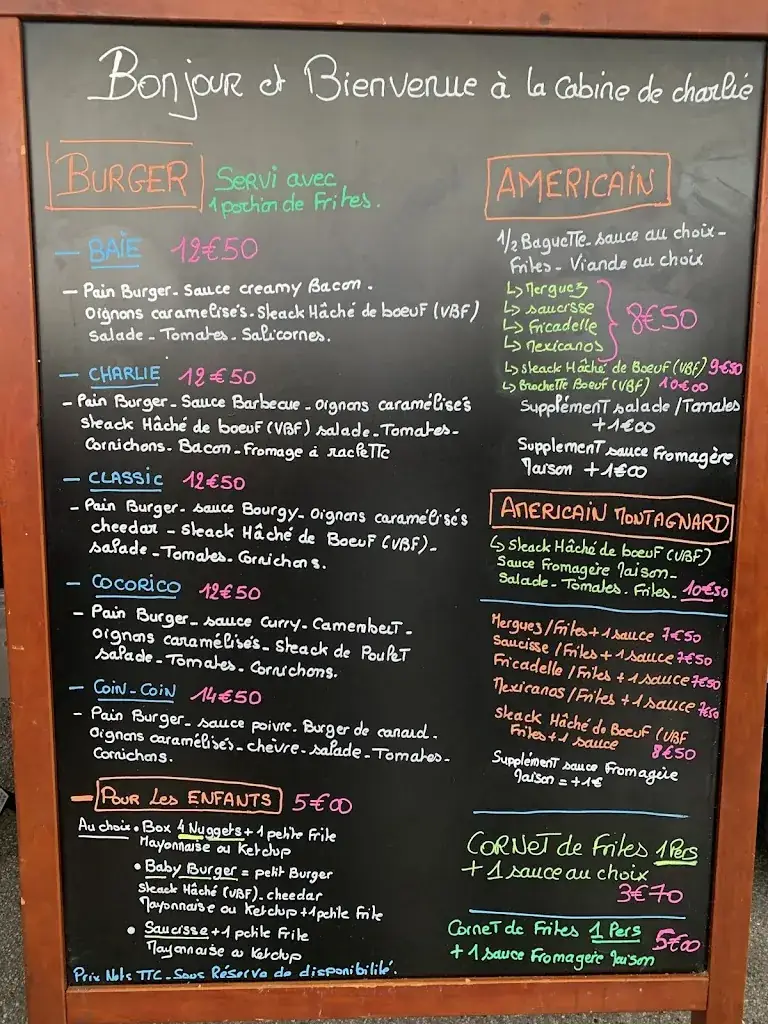 Bonjour et Bienvenue à la cabine de charlie
BURGER
Servi avec
1 portion de Frites.
- BAIE 12€50
- Pain Burger - Sauce creamy Bacon -
oignons caramelisés - Steack Hâché de boeuf (VBF)
salade - Tomates - Salicornes.
- CHARLIE 12€50
- Pain Burger - Sauce Barbecue - oignons caramélisés
steack Hâché de boeuf (VBF) salade - Tomates -
Cornichons - Bacon - Fromage à raclette
- CLASSIC 12€50
- Pain Burger - sauce Bourgy - Oignons caramélisés
cheedar - Steack Hâché de Boeuf (VBF) -
salade - Tomates - Cornichons.
- COCORICO 12€50
- Pain Burger - sauce curry - Camembert -
oignons caramélisés - Steack de Poulet
salade - Tomates - Cornichons.
- COIN-COIN 14€50
- Pain Burger - sauce poivre - Burger de canard -
Oignons caramélisés - chèvre - salade - Tomates -
Cornichons.
- POUR Les ENFANTS 5€00
Au choix • Box 4 Nuggets + 1 petite Frite
Mayonnaise ou Ketchup
• Baby Burger = petit Burger
Steack Hâché (VBF) - cheedar
Mayonnaise ou Ketchup + 1 petite Frite
• Saucisse + 1 petite Frite
Mayonnaise ou Ketchup
Prix Nets TTC - Sous Réserve de disponibilité.
AMERICAIN
1/2 Baguette - sauce au choix -
Frites - Viande au choix
↳ Merguez
↳ saucisse
↳ Fricadelle
↳ Mexicanos
8€50
↳ Steack Hâché de Boeuf (VBF) 9€50
↳ Brochette Boeuf (VBF) 10€00
Supplément salade / Tomates
+ 1€00
Supplement sauce Fromagère
Maison + 1€00
AMERICAIN MONTAGNARD
↳ Steack Hâché de boeuf (VBF)
Sauce Fromagère Maison -
Salade - Tomates - Frites - 10€50
Merguez / Frites + 1 sauce 7€50
Saucisse / Frites + 1 sauce 7€50
Fricadelle / Frites + 1 sauce 7€50
Mexicanos / Frites + 1 sauce 7€50
Steack Hâché de Boeuf (VBF
Frites + 1 sauce 8€50
Supplément sauce Fromagère
Maison = + 1€
CORNET de Frites 1 Pers
+ 1 sauce au choix
3€70
Cornet de Frites 1 Pers 5€00
+ 1 sauce Fromagère Maison